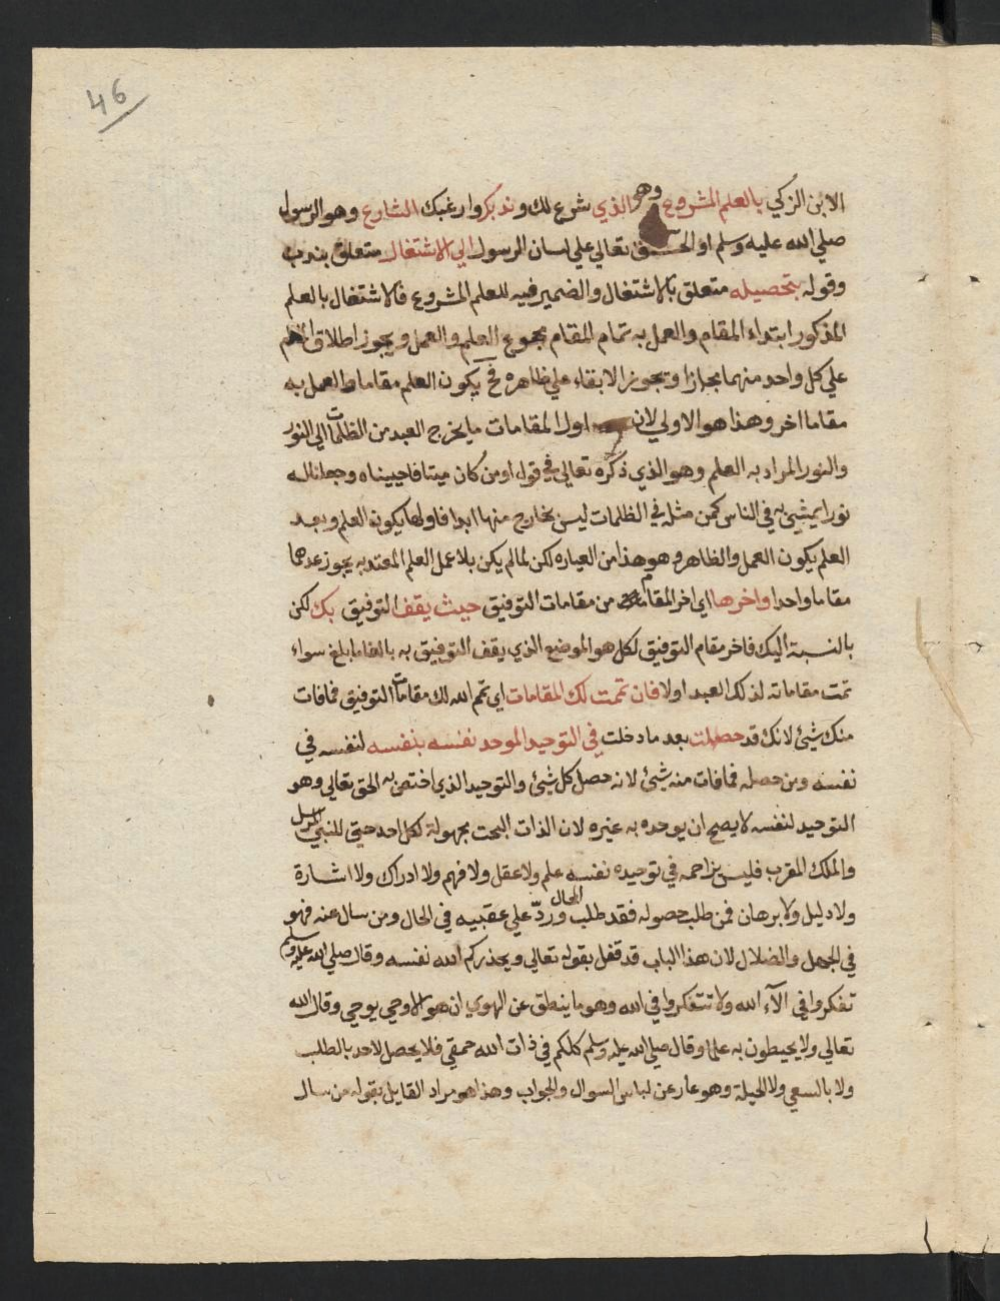 46
الابن الزكي بالعلم المشروع وهو الذي شرع لك وندبك وارغبك الشارع وهو الرسول
صلي الله عليه وسلم او الحق تعالي علي لسان الرسول الي الاشتغال متعلق بندب
وقوله بتحصيله متعلق بالاشتغال والضمير فيه للعلم المشروع فالاشتغال بالعلم
المذكور ابتداء المقام والعمل به تمام المقام مجموع العلم والعمل ويجوز اطلاق
علي كل واحد منهما مجازا ويجوز الابقاء علي ظاهره فح يكون العلم مقاما والعمل به
مقاما اخر وهذا هو الاولي لان اول المقامات ما يخرج العبد من الظلمات الي النور
والنور المراد به العلم وهو الذي ذكره تعالي في قوله اومن كان ميتا فاحييناه وجعلنا له
نورا يمشي به في الناس كمن مثله في الظلمات ليس بخارج منها ابدا فاولها يكون العلم وبعد
العلم يكون العمل والظاهر هو هذا من العباره لكن لما لم يكن بلا عمل العلم المعتد به يجوز عدهما
مقاما واحدا واخرها اي اخر المقام من مقامات التوفيق حيث يقف التوفيق بك لكن
بالنسبة اليك فاخر مقام التوفيق لكل هو الموضع الذي يقف التوفيق به بالغا ما بلغ سواء
تمت مقاماته لذلك العبد اولا فان تممت لك المقامات اي تمم الله لك مقامات التوفيق فمافات
منك شيئ لانك قد حصلت بعد ما دخلت في التوحيد الموحد نفسه بنفسه لنفسه في
نفسه ومن حصله فمافات منه شيئ لانه حصل كل شيئ والتوحيد الذي اختص به الحق تعالي وهو
التوحيد لنفسه لا يصح ان يوحده به غيره لان الذات البحت مجهولة لكل احد حتي للنبي المرسل
والملك المقرب فليس يزاحمه في توحيده نفسه علم ولا عقل ولا فهم ولا ادراك ولا اشارة
ولا دليل ولا برهان فمن طلب حصوله فقد طلب المحال وردّ علي عقبيه في الحال ومن سال عنه فهو
في الجهل والضلال لان هذا الباب قد قفل بقوله تعالي ويحذركم الله نفسه وقال صلي الله عليه وسلم
تفكروا في الآء الله ولا تتفكروا في الله وهو ما ينطق عن الهوي ان هو الا وحي يوحي وقال الله
تعالي ولا يحيطون به علما وقال صلي الله عليه وسلم كلكم في ذات الله حمقي فلا يحصل لاحد بالطلب
ولا بالسعي ولا الحيلة وهو عار عن لباس السوال والجواب وهذا هو مراد القايل بقوله من سال